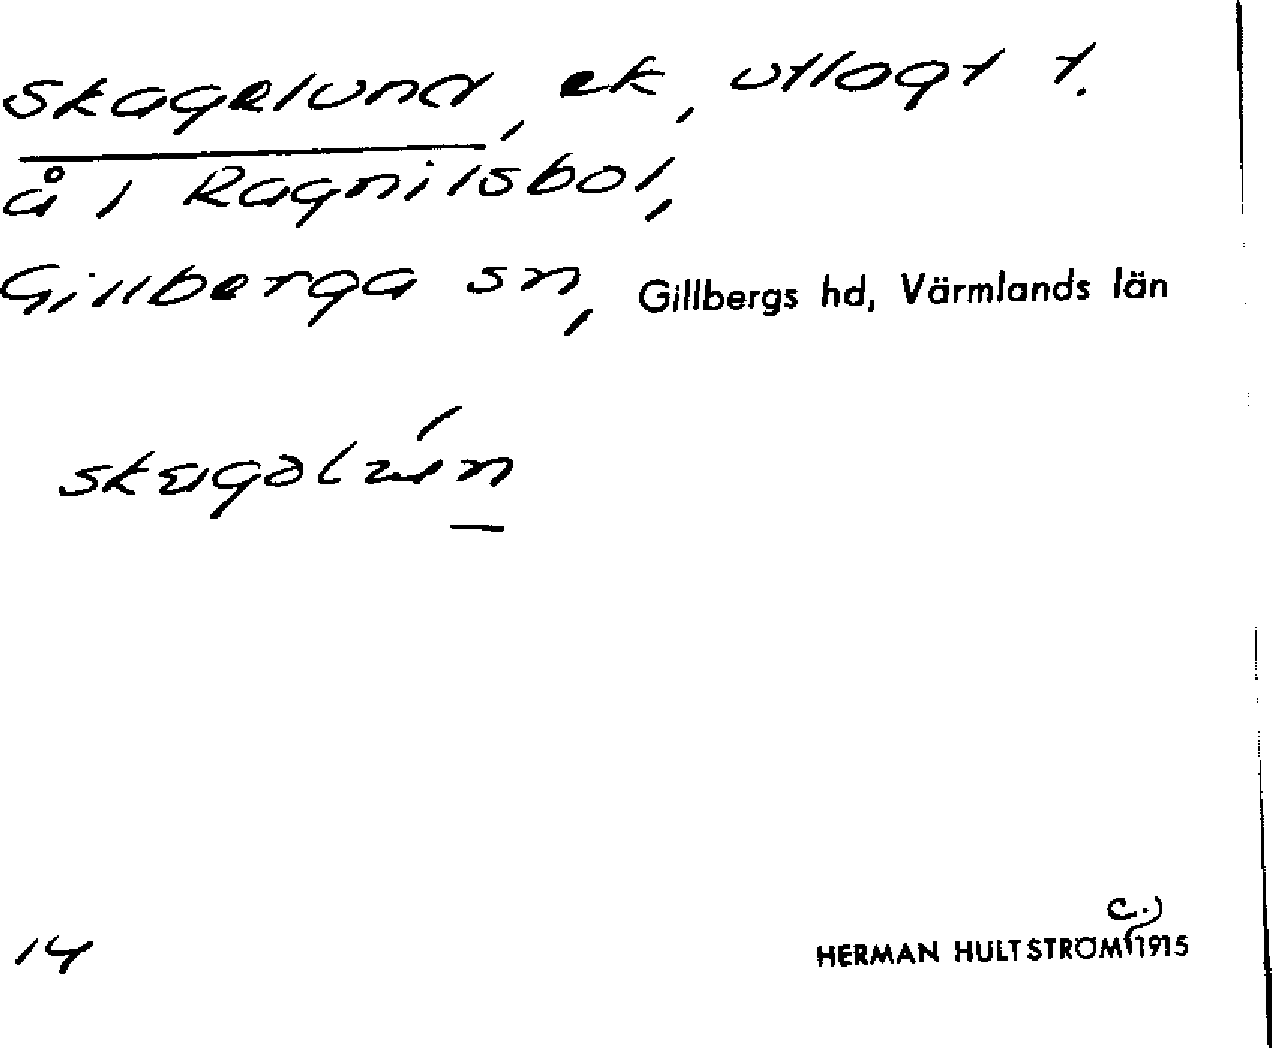 Skagelund, ek, utlagt t.
å 1 Ragnilsbol,
Gillberga sn, Gillbergs hd, Värmlands län
14
c.)
HERMAN HULTSTRÖM 1915